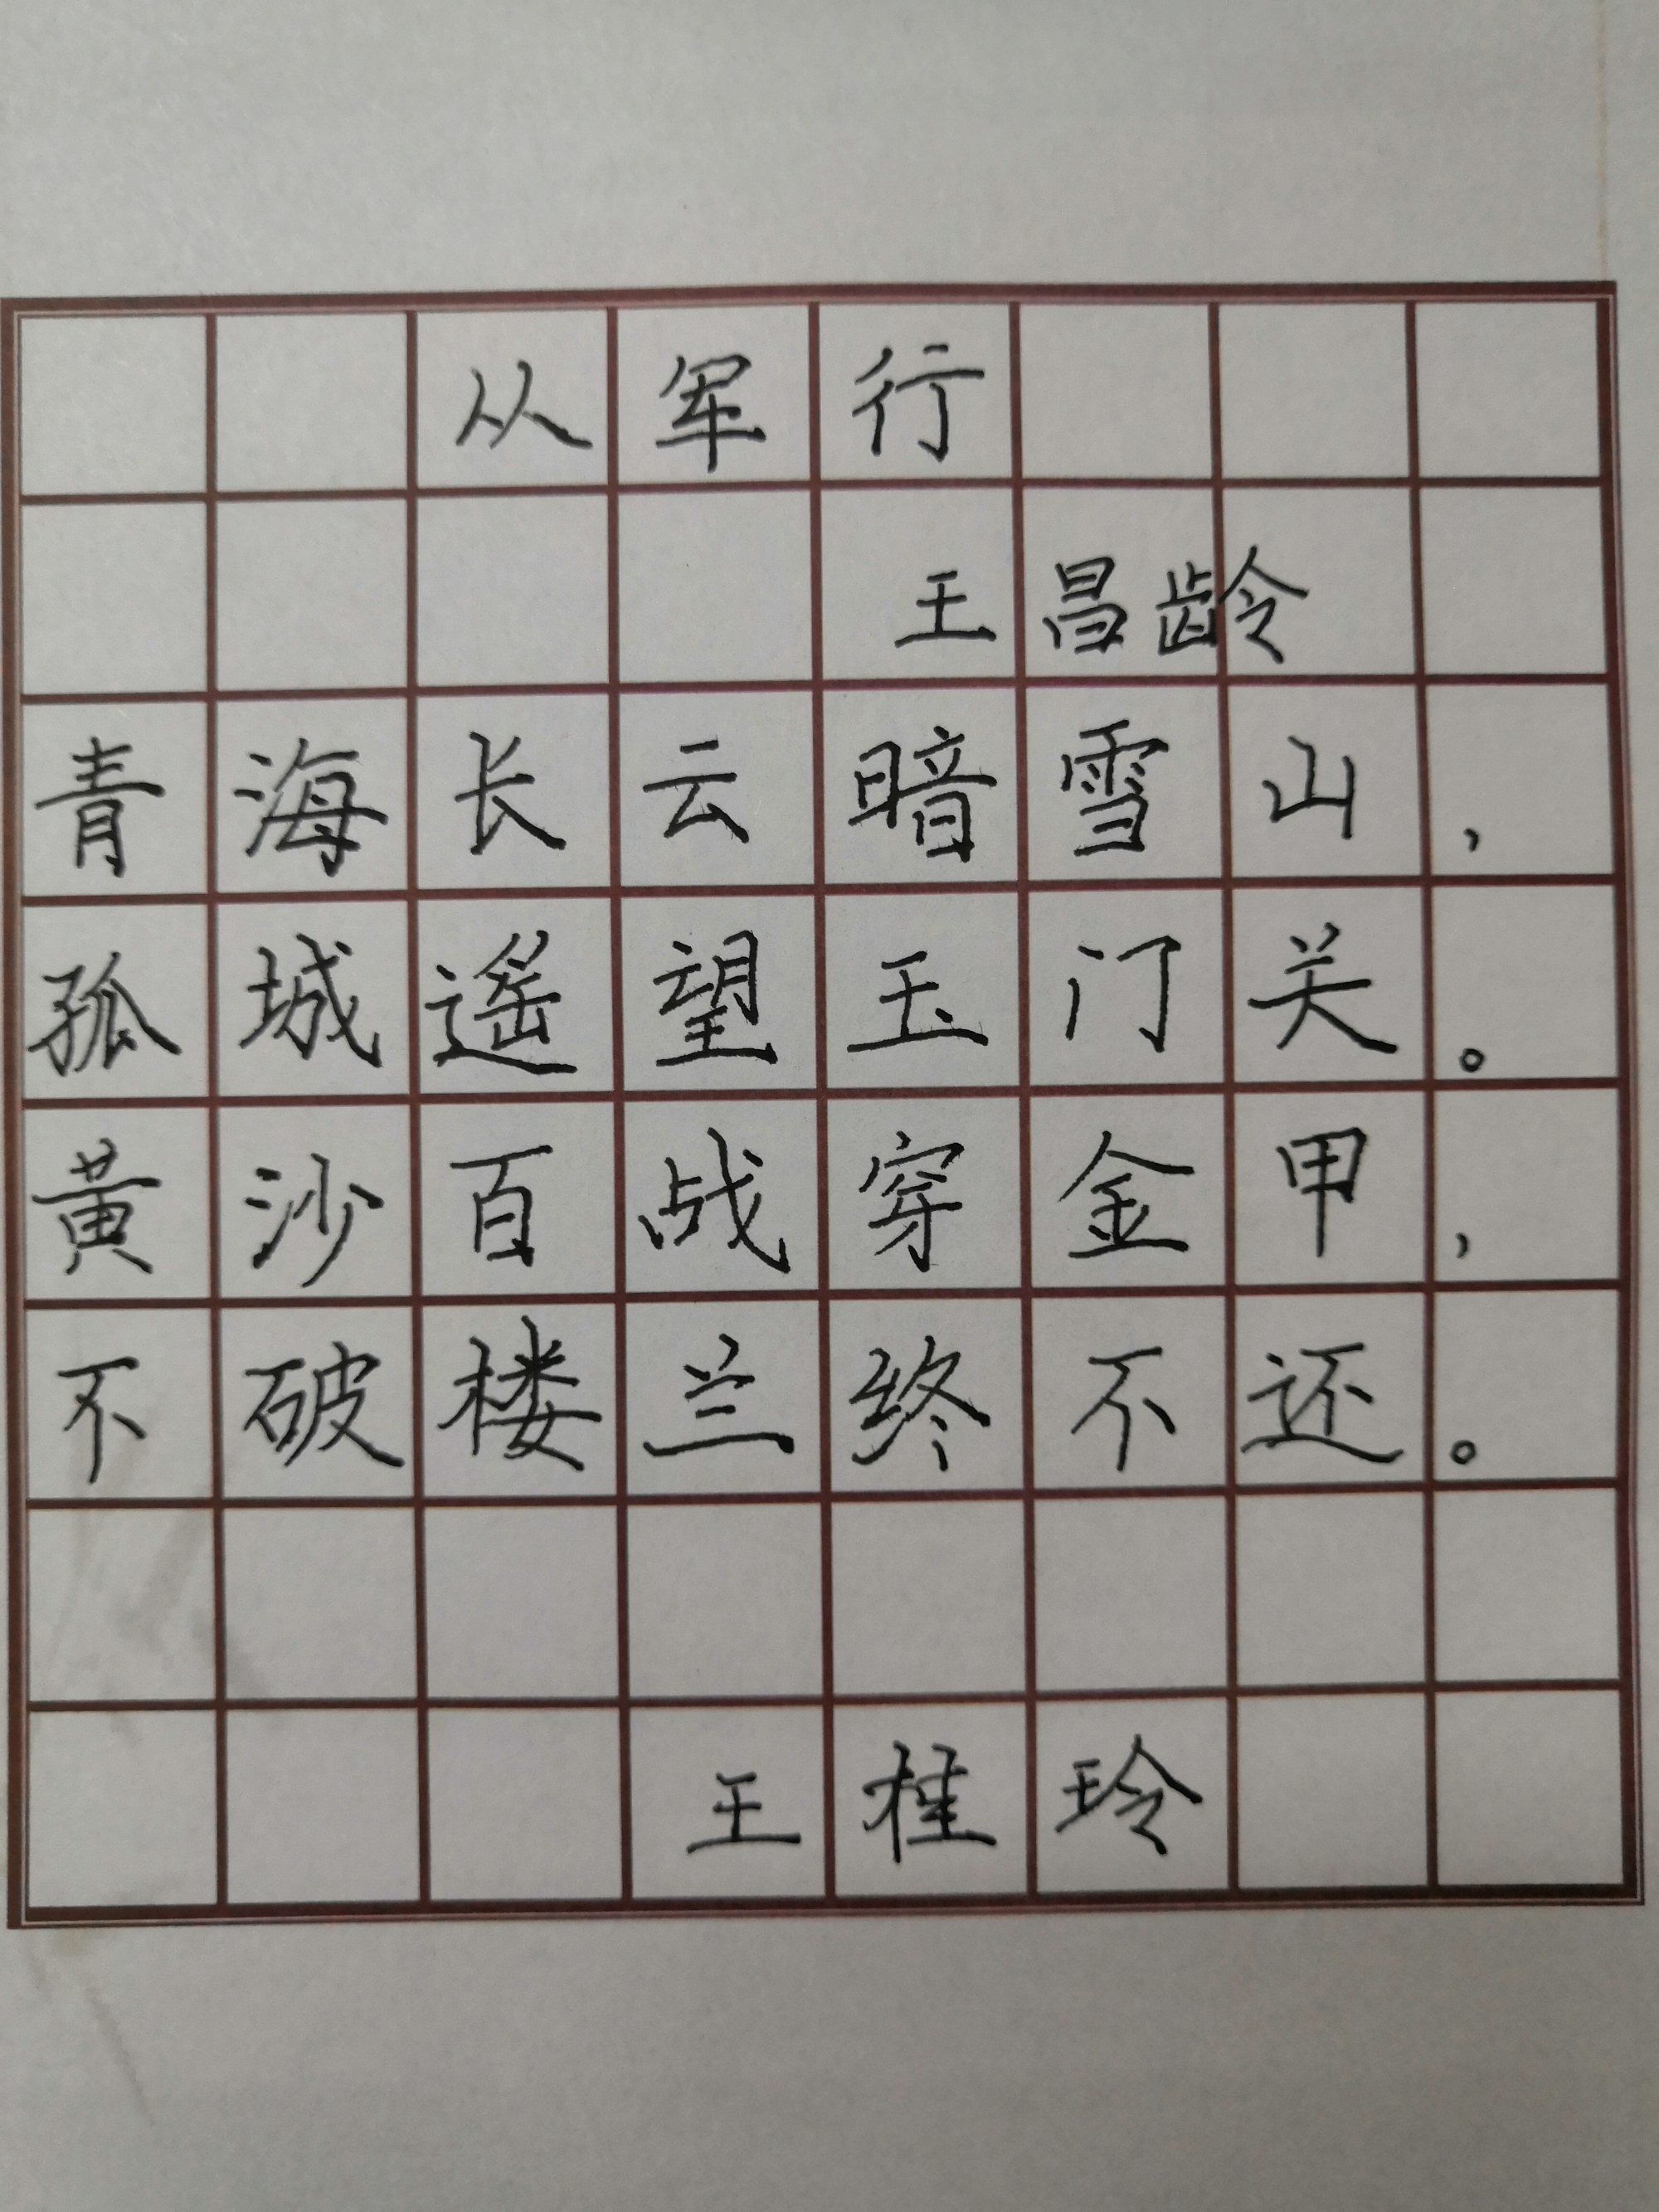 从军行
王昌龄
青海长云暗雪山，
孤城遥望玉门关。
黄沙百战穿金甲，
不破楼兰终不还。
王桂玲